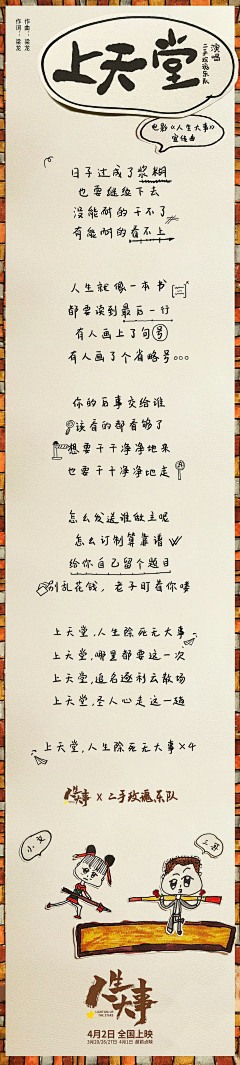 作曲：梁龙
作词：梁龙
上天堂
演唱
二手玫瑰乐队
电影《人生大事》
宣传曲
日子过成了浆糊
也要继续下去
没能耐的干不了
有能耐的看不上
人生就像一本书
都要读到最后一行
有人画上了句号
有人画了个省略号。。。
你的后事交给谁
该看的都看够了
想要干干净净地来
也要干干净净地走
怎么发送谁做主呢
怎么订制算靠谱
给你自己留个题目
别乱花钱，老子盯着你喽
上天堂，人生除死无大事
上天堂，哪里都要这一次
上天堂，追名逐利云散场
上天堂，圣人心走这一趟
上天堂，人生除死无大事×4
人生大事 × 二手玫瑰乐队
小文
三哥
人生大事
LIGHTING UP
THE STARS
4月2日 全国上映
3月19/20/26/27日 4月1日 超前点映